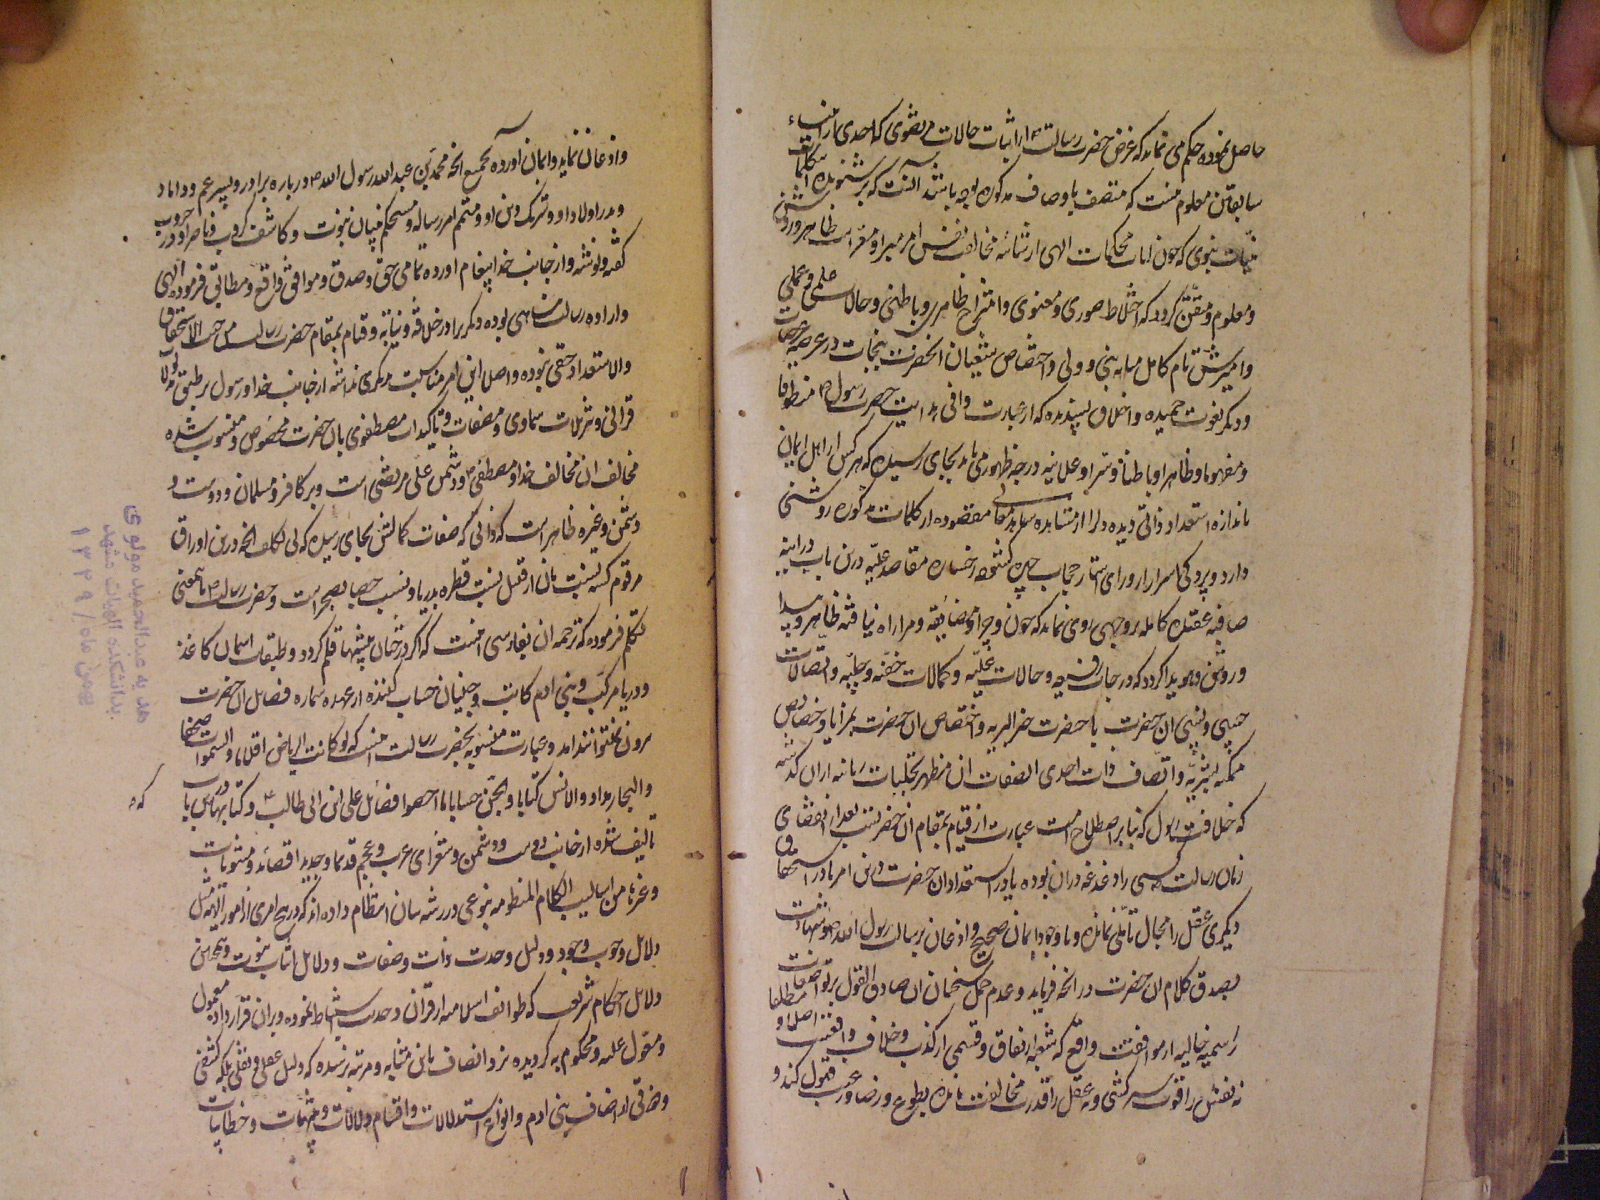 حاصل نموده حکم می نماید که غرض حضرت رسالت از اثبات حالات که احدی از انبیاء
سابقین معلوم نیست که متصف باوصاف مذکوره بوده باشد انست که
نبوی که چون ایات محکمات الهی از شائبه مخالفت نفس امر مبرا و معرا است ظاهر و روشن
و معلوم و متیقن گردد که اختلاط صوری و معنوی و امتزاج ظاهری و باطنی و حالات علمی و عملی
و امیزش تام کامل میانه نبی و ولی و اختصاص شیعیان انحضرت بنجات در عرصه عرصات
و دیگر نعوت حمیده و اخلاق پسندیده که از عبارت وافی هدایت حضرت رسول ص منطوقا
و مفهوما و ظاهرا و باطنا و سرا و علانیه درجه ظهور می یابد بجای رسیده که هر کس از اهل ایمان
باندازه استعداد ذاتی دیده دل را از مشاهده معانی مقصوده از کلمات مذکوره روشنی
دارد و پردگی اسرار از ورای استار حجاب چهره گشوده رخساره مقاصد علیه درین باب در اینه
صافیه عقیده کامله بر وجهی روی نماید که چون و چرا و مضایقه و مرا راه نیافته ظاهر و پیدا
و روشن و هویدا گردد که درجات رفیعه و حالات علیه و کمالات خفیه و جلیه و اتصالات
حسبی و نسبی ان حضرت با حضرت خیر البریه و اختصاص ان حضرت بمزایا و خصایص
ممکنه بشریه و اتصاف ذات احدی الصفات ان مظهر تجلیات ربانیه ازان گذشته
که خلافت رسول که بنابر اصطلاح امت عبارت از قیام بمقام ان حضرتست بعد از انقضای
زمان رسالت کسی را دغدغه دران بوده یا در استعداد ان حضرت درین امر یا در استحقاق
دیگری عقل را مجال تاملی نمانده و با وجود ایمان صحیح و اذعان برسالت رسول الله ص و شهادت
بصدق کلام ان حضرت در انچه فرماید و عدم حمل سخنان ان صادق القول بر تواضعات
رسمیه خالیه از موافقت واقع که شعبه از نفاق و قسمی از کذب و خلاف واقعست اصلا و مطلقا
نه نفس را قوت سرکشی و نه عقل را قدرت مخالفت مانده بطوع و رضا و رغبت قبول کند و
و اذعان نماید و ایمان اورده بجمیع انچه محمد بن عبدالله رسول الله ص درباره برادر و پسر عم و داماد
و پدر اولاد او و شریک دین او و متمم امر رساله و مستحکم بنیان نبوت و کاشف کروب و ناصر او در حروب
گفته و نوشته و از جانب خدا پیغام اورده تمامی حق و صدق و موافق واقع و مطابق فرموده الهی
و اراده رسالت پناهی بوده دیگری را در خلافة و نیابة و قیام بمقام حضرت رسالت من حیث الاستحقاق
والاستعداد حقی نبوده و اصلا این امر مناسبت بدیگری نداشته از جانب خدا و رسول بر طبق
قرانی و تنزیلات سماوی و تاکیدات مصطفوی بان حضرت مخصوص و منسوب شده
مخالف ان مخالف خدا و مصطفی ص و دشمن علی مرتضی است و بر کافر و مسلمان و دوست و
دشمن و غیره ظاهر است که ذاتی که صفات کمالش بجای رسیده که بی تکلف انچه درین اوراق
مرقوم گشته نسبت بان از قبیل نسبت قطره بدریا و نسبت حصا بصحراست و حضرت رسالت باین معنی
تکلم فرموده که ترجمه ان بفارسی اینست که اگر درختان بیشها قلم گردد و طبقات اسمان کاغذ
و دریا مرکب و بنی ادم کاتب و جنیان حساب کننده از عهده شماره فضایل ان حضرت
برون نمیتوانند امد و عبارت منسوبه بحضرت رسالت اینست که لو کانت الریاض اقلاما و السموات صحفا
والبحار مداد والانس کتابا والجن حسابا ما احصوا فضائل علی ابن ابی طالب ع و کتابها درین باب
تالیف شده از جانب دوست و دشمن و شعرای عرب و عجم قدیما و جدیدا قصائد و مثنویات
و غیرها من اسالیب الکلام المنظومه بنوعی در رشته بیان انتظام داده اند که در هیچ امری از امور الهیه مثل
دلائل وجوب وجود و دلیل وحدت ذات و صفات و دلائل اثبات نبوت و همچنین
دلائل احکام شریعت که طوائف اسلامیه از قران و حدیث استنباط نموده و بران قرار داد معمول
و معول علیه و محکوم به گردیده نزد انصاف باین مثابه و مرتبه نرسیده که دلیل عقلی و نقلی بلکه کشفی
و ذوقی از اصناف بنی ادم و انواع استدلالات و اقسام دلالات و تنبیهات و خطابیات
هدیه عبدالحمید مولوی
بدانشکده الهیات مشهد
بهمن ماه / ۱۳۴۹